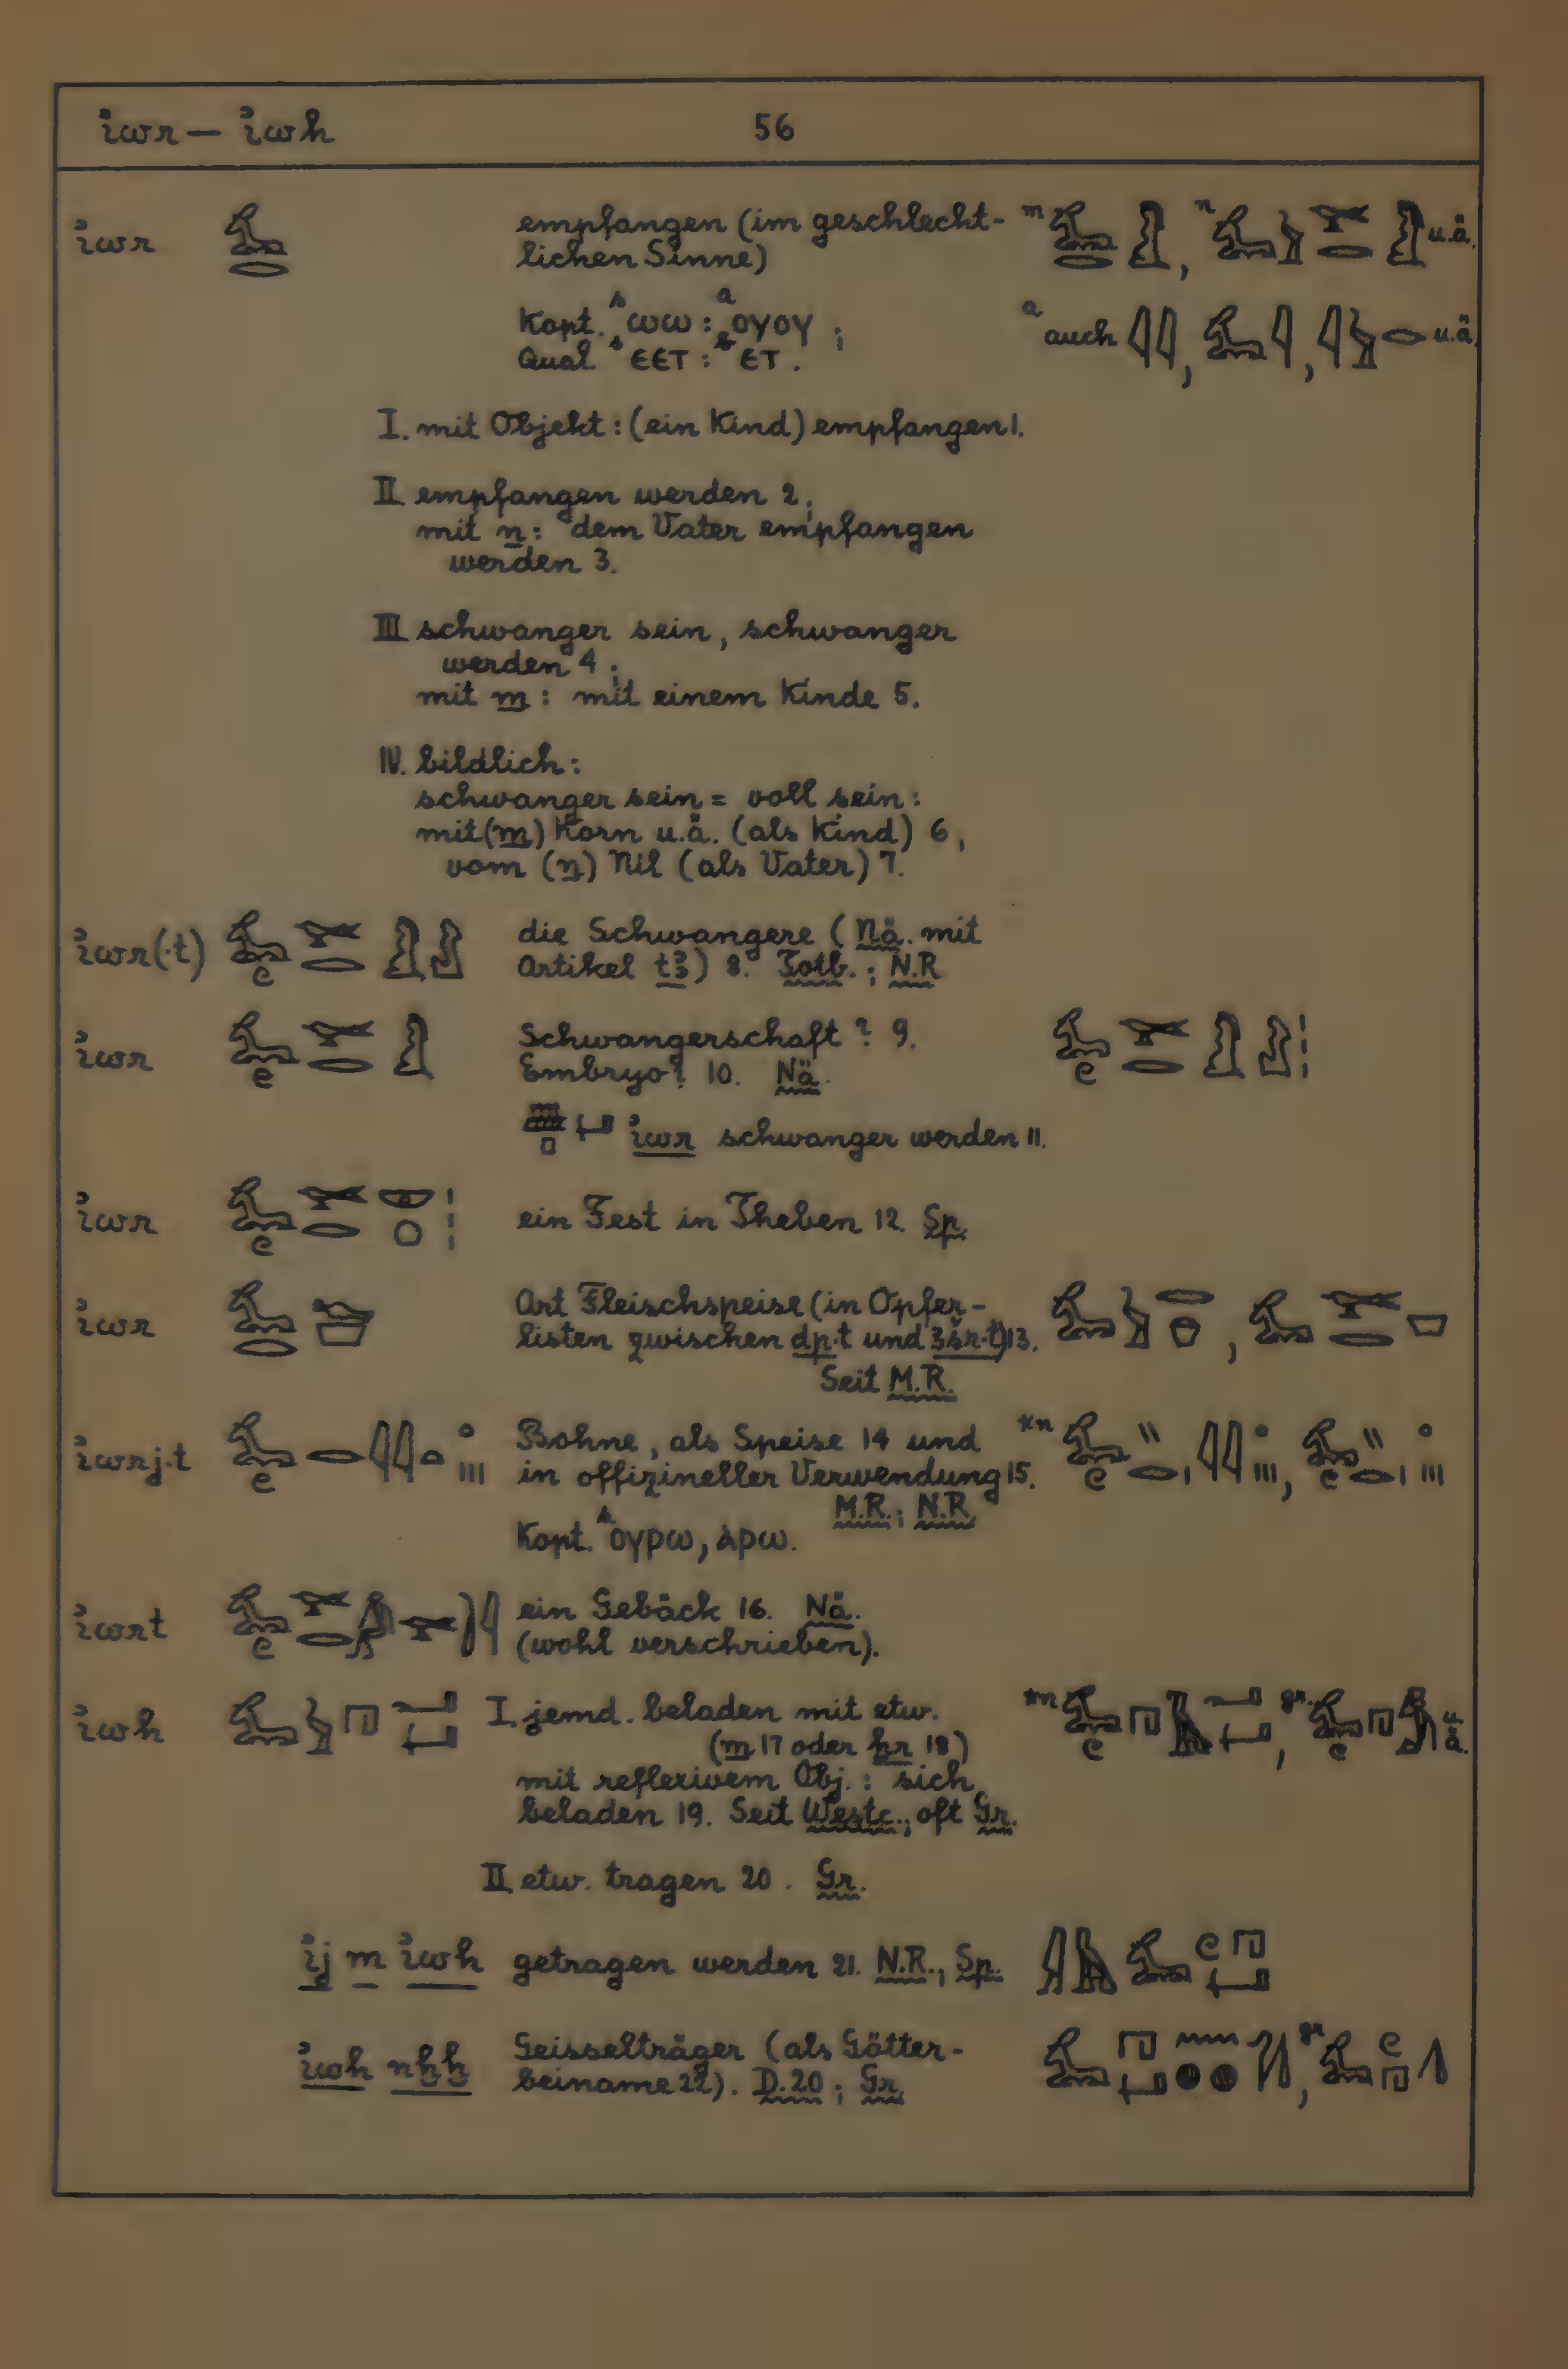 ꞽwr — ꞽwh 56
ꞽwr empfangen (im geschlecht- m , n u.ä.
lichen Sinne)
Kopt. s ⲱⲱ : a ⲟⲩⲟⲩ ; a auch , , u.ä.
Qual. s ⲉⲉⲧ : b ⲉⲧ .
I. mit Objekt : (ein Kind) empfangen 1.
II. empfangen werden 2 ;
mit n : dem Vater empfangen
werden 3.
III schwanger sein, schwanger
werden 4 ;
mit m : mit einem Kinde 5.
IV. bildlich :
schwanger sein = voll sein :
mit (m) Korn u.ä. (als Kind) 6 ,
vom (n) Nil (als Vater) 7.
ꞽwr(·t) die Schwangere ( Nä. mit
Artikel tꜣ ) 8. Totb. ; N.R
ꞽwr Schwangerschaft ? 9.
Embryo ? 10. Nä.
ꞽwr schwanger werden 11.
ꞽwr ein Fest in Theben 12. Sp.
ꞽwr Art Fleischspeise (in Opfer-
listen zwischen dp·t und ꜣšr·t) 13.
Seit M.R.
ꞽwrj·t Bohne, als Speise 14 und
in offizineller Verwendung 15.
M.R. ; N.R
Kopt. s ⲟⲩⲣⲱ, ⲁⲣⲱ.
ꞽwrt ein Gebäck 16. Nä.
(wohl verschrieben).
ꞽwh I. jemd. beladen mit etw. , gr. u.ä.
(m 17 oder ḥr 18)
mit reflexivem Obj. : sich
beladen 19. Seit Westc. ; oft Gr.
II. etw. tragen 20 . Gr.
ꞽj m ꞽwh getragen werden 21. N.R. ; Sp.
ꞽwh nḫḫ Geisselträger (als Götter- , gr
beiname 22). D.20 ; Gr.